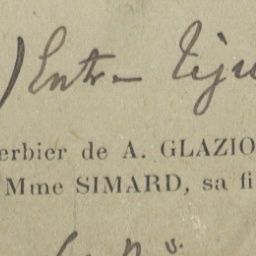 ) Entr- Tiju
erbier de A. GLAZIO
Mme SIMARD, sa fi